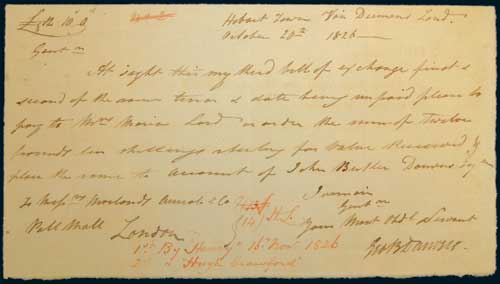 £12..10..0
Hobart Town Van Diemens Land.
October 20th 1826
Gentn
At sight this my third bill of exchange first &
second of the same tenor & date being unpaid please to
pay to Mrs Maria Lord or order the sum of Twelve
pounds ten shillings sterling for value Received &
place the same to account of John Butler Dawson Esq
I remain
To Messrs Morlands & Co
Gentn
Pall Mall
Your Most Obdt Servant
London
1st By Henry 16 Novr 1826
2d " Hugh Crawford